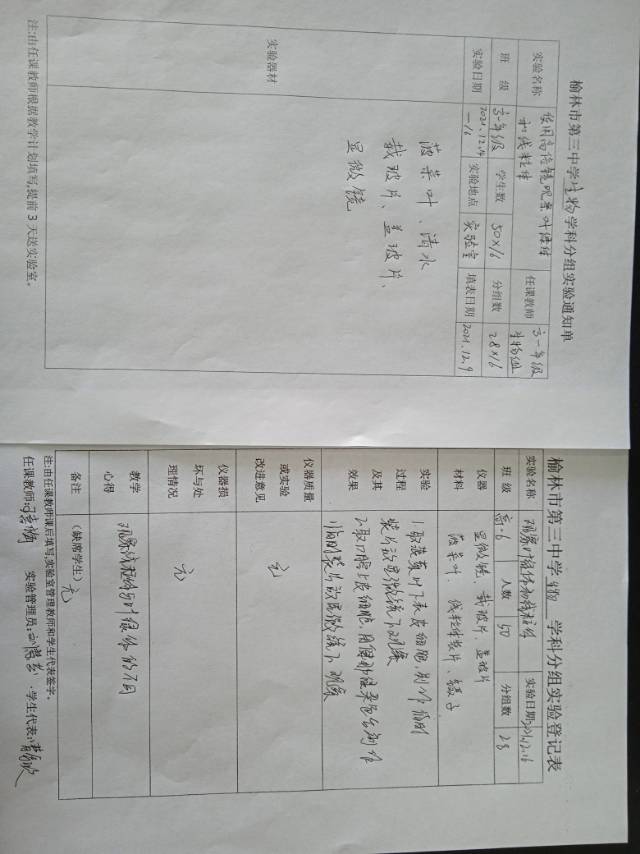 榆林市第三中学生物学科分组实验通知单
实验名称 使用高倍镜观察叶绿体和线粒体 任课教师 高一年级生物组
班 级 高一年级 学生数 50×16 分组数 28×16
实验日期 2021.12.14—16 实验地点 实验室 填表日期 2021.12.9
实验器材
菠菜叶、清水
载玻片、盖玻片、
显微镜
注:由任课教师根据教学计划填写,提前 3 天送实验室。
榆林市第三中学生物 学科分组实验登记表
实验名称 观察叶绿体和线粒体 实验日期 2021.12.16
班 级 高一6 人数 50 分组数 28
仪器材料 显微镜 载玻片 盖玻片
菠菜叶 线粒体装片、镊子
实验过程及其效果
1.取菠菜叶下表皮细胞,制作临时
装片放显微镜下观察
2.取口腔上皮细胞,用健那绿染色制作
临时装片放显微镜下观察
仪器质量或实验改进意见 无
仪器损坏与处理情况 无
教学心得 观察线粒体与叶绿体的不同
备注 (缺席学生) 无
注:由任课教师课后填写,实验室管理教师和学生代表签字。
任课教师: 实验管理员: 学生代表: